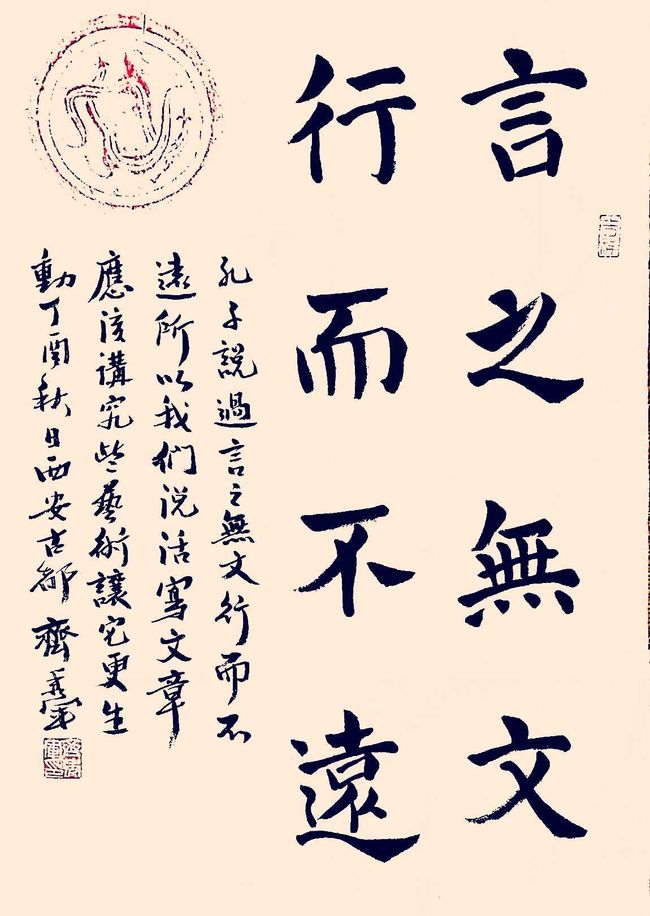 言之無文
行而不遠
孔子說過言之無文行而不
遠所以我們说活寫文章
應该講究些藝術讓它更生
動丁酉秋日西安古都齊